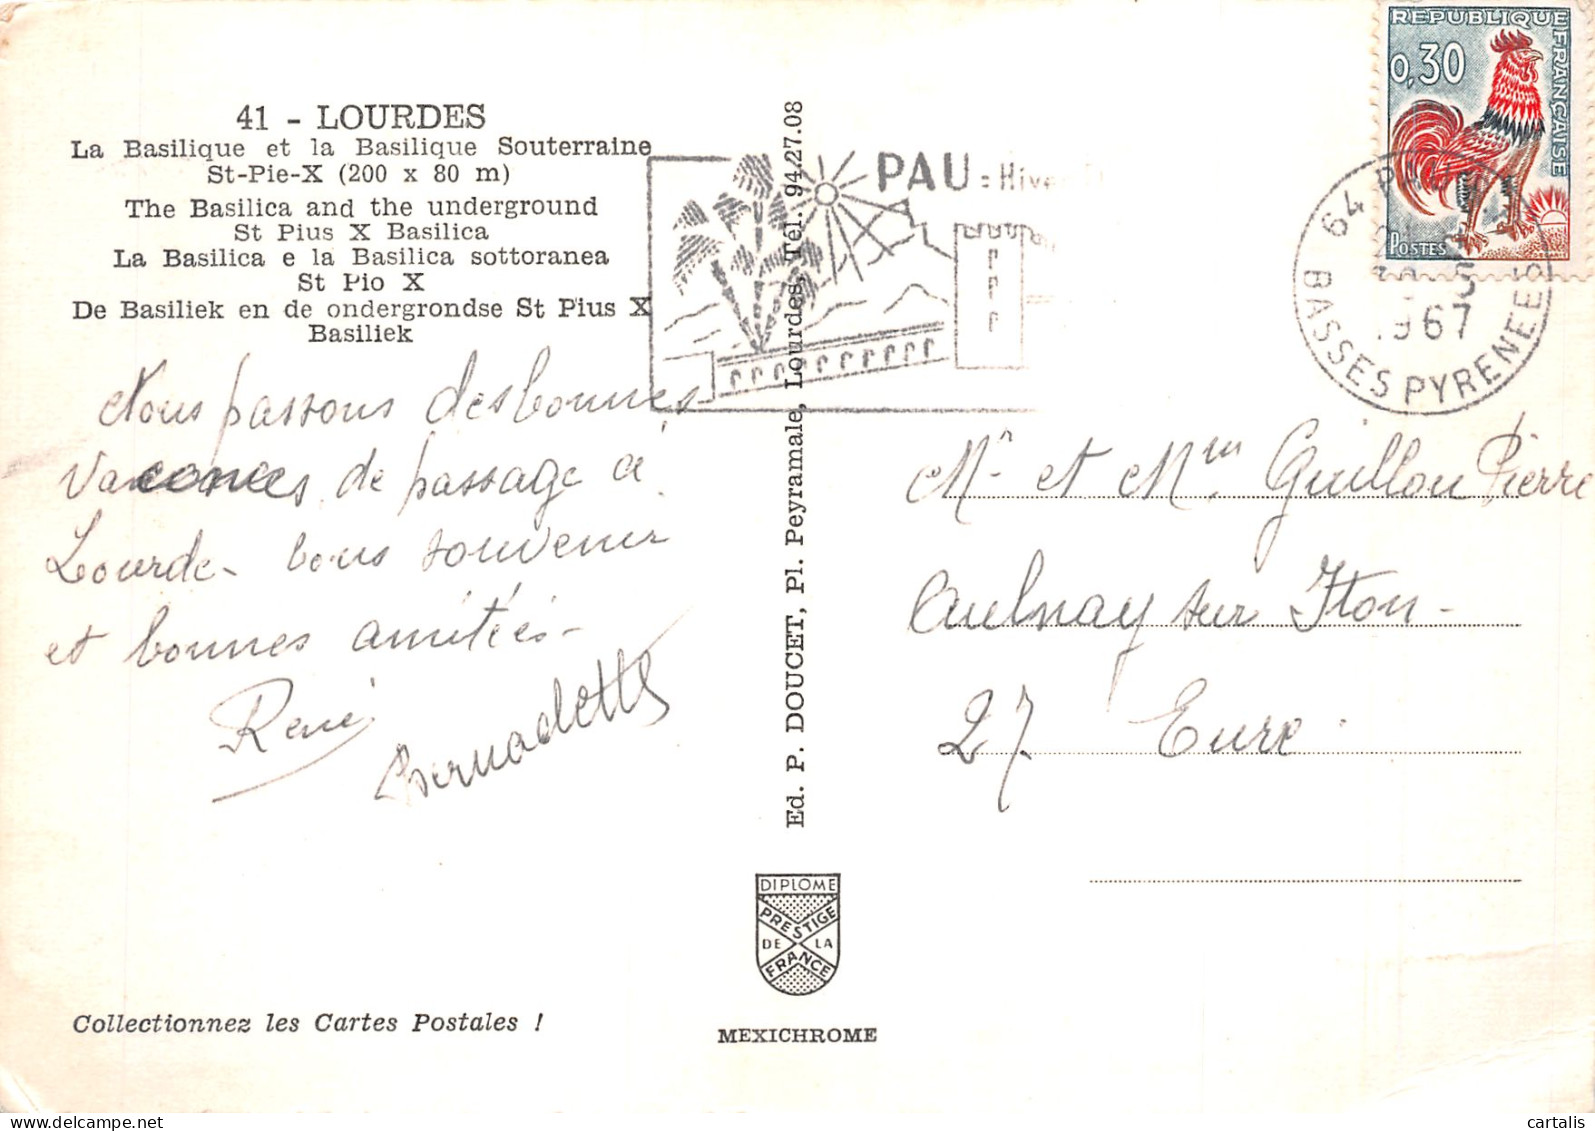 41 - LOURDES
La Basilique et la Basilique Souterraine
St-Pie-X (200 x 80 m)
The Basilica and the underground
St Pius X Basilica
La Basilica e la Basilica sottoranea
St Pio X
De Basiliek en de ondergrondse St Pius X
Basiliek
Nous passons des bonnes
vacances de passage a
Lourde - bons souvenir
et bonnes amitées -
René
Bernadette
Ed. P. DOUCET, Pl. Peyramale, Lourdes, Tél. 94.27.08
PAU : Hiver
REPUBLIQUE FRANÇAISE
0,30
POSTES
DECARIS
64 PAU
1967
BASSES PYRENEES
Mr et Mme Guillou Pierre
Aulnay sur Iton -
27 Eure
DIPLOME
PRESTIGE
DE LA
FRANCE
Collectionnez les Cartes Postales !
MEXICHROME
cartalis